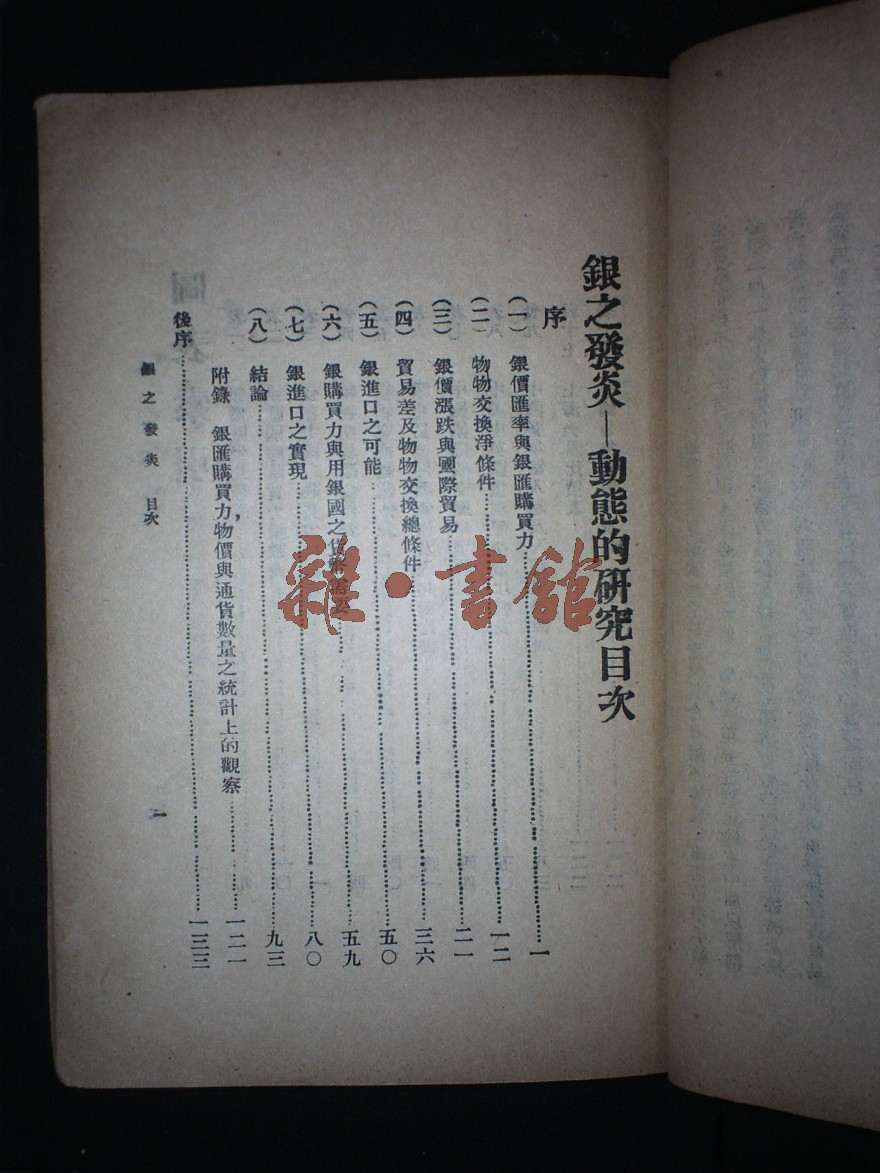 銀之發炎—動態的研究目次
序
(一) 銀價匯率與銀匯購買力……一
(二) 物物交換淨條件……一二
(三) 銀價漲跌與國際貿易……二一
(四) 貿易差及物物交換總條件……三六
(五) 銀進口之可能……五〇
(六) 銀購買力與用銀國之貨幣需要……五九
(七) 銀進口之實現……八〇
(八) 結論……九三
附錄 銀匯購買力,物價與通貨數量之統計上的觀察……一二一
後序……一三三
銀之發炎 目次
一
雜·書館